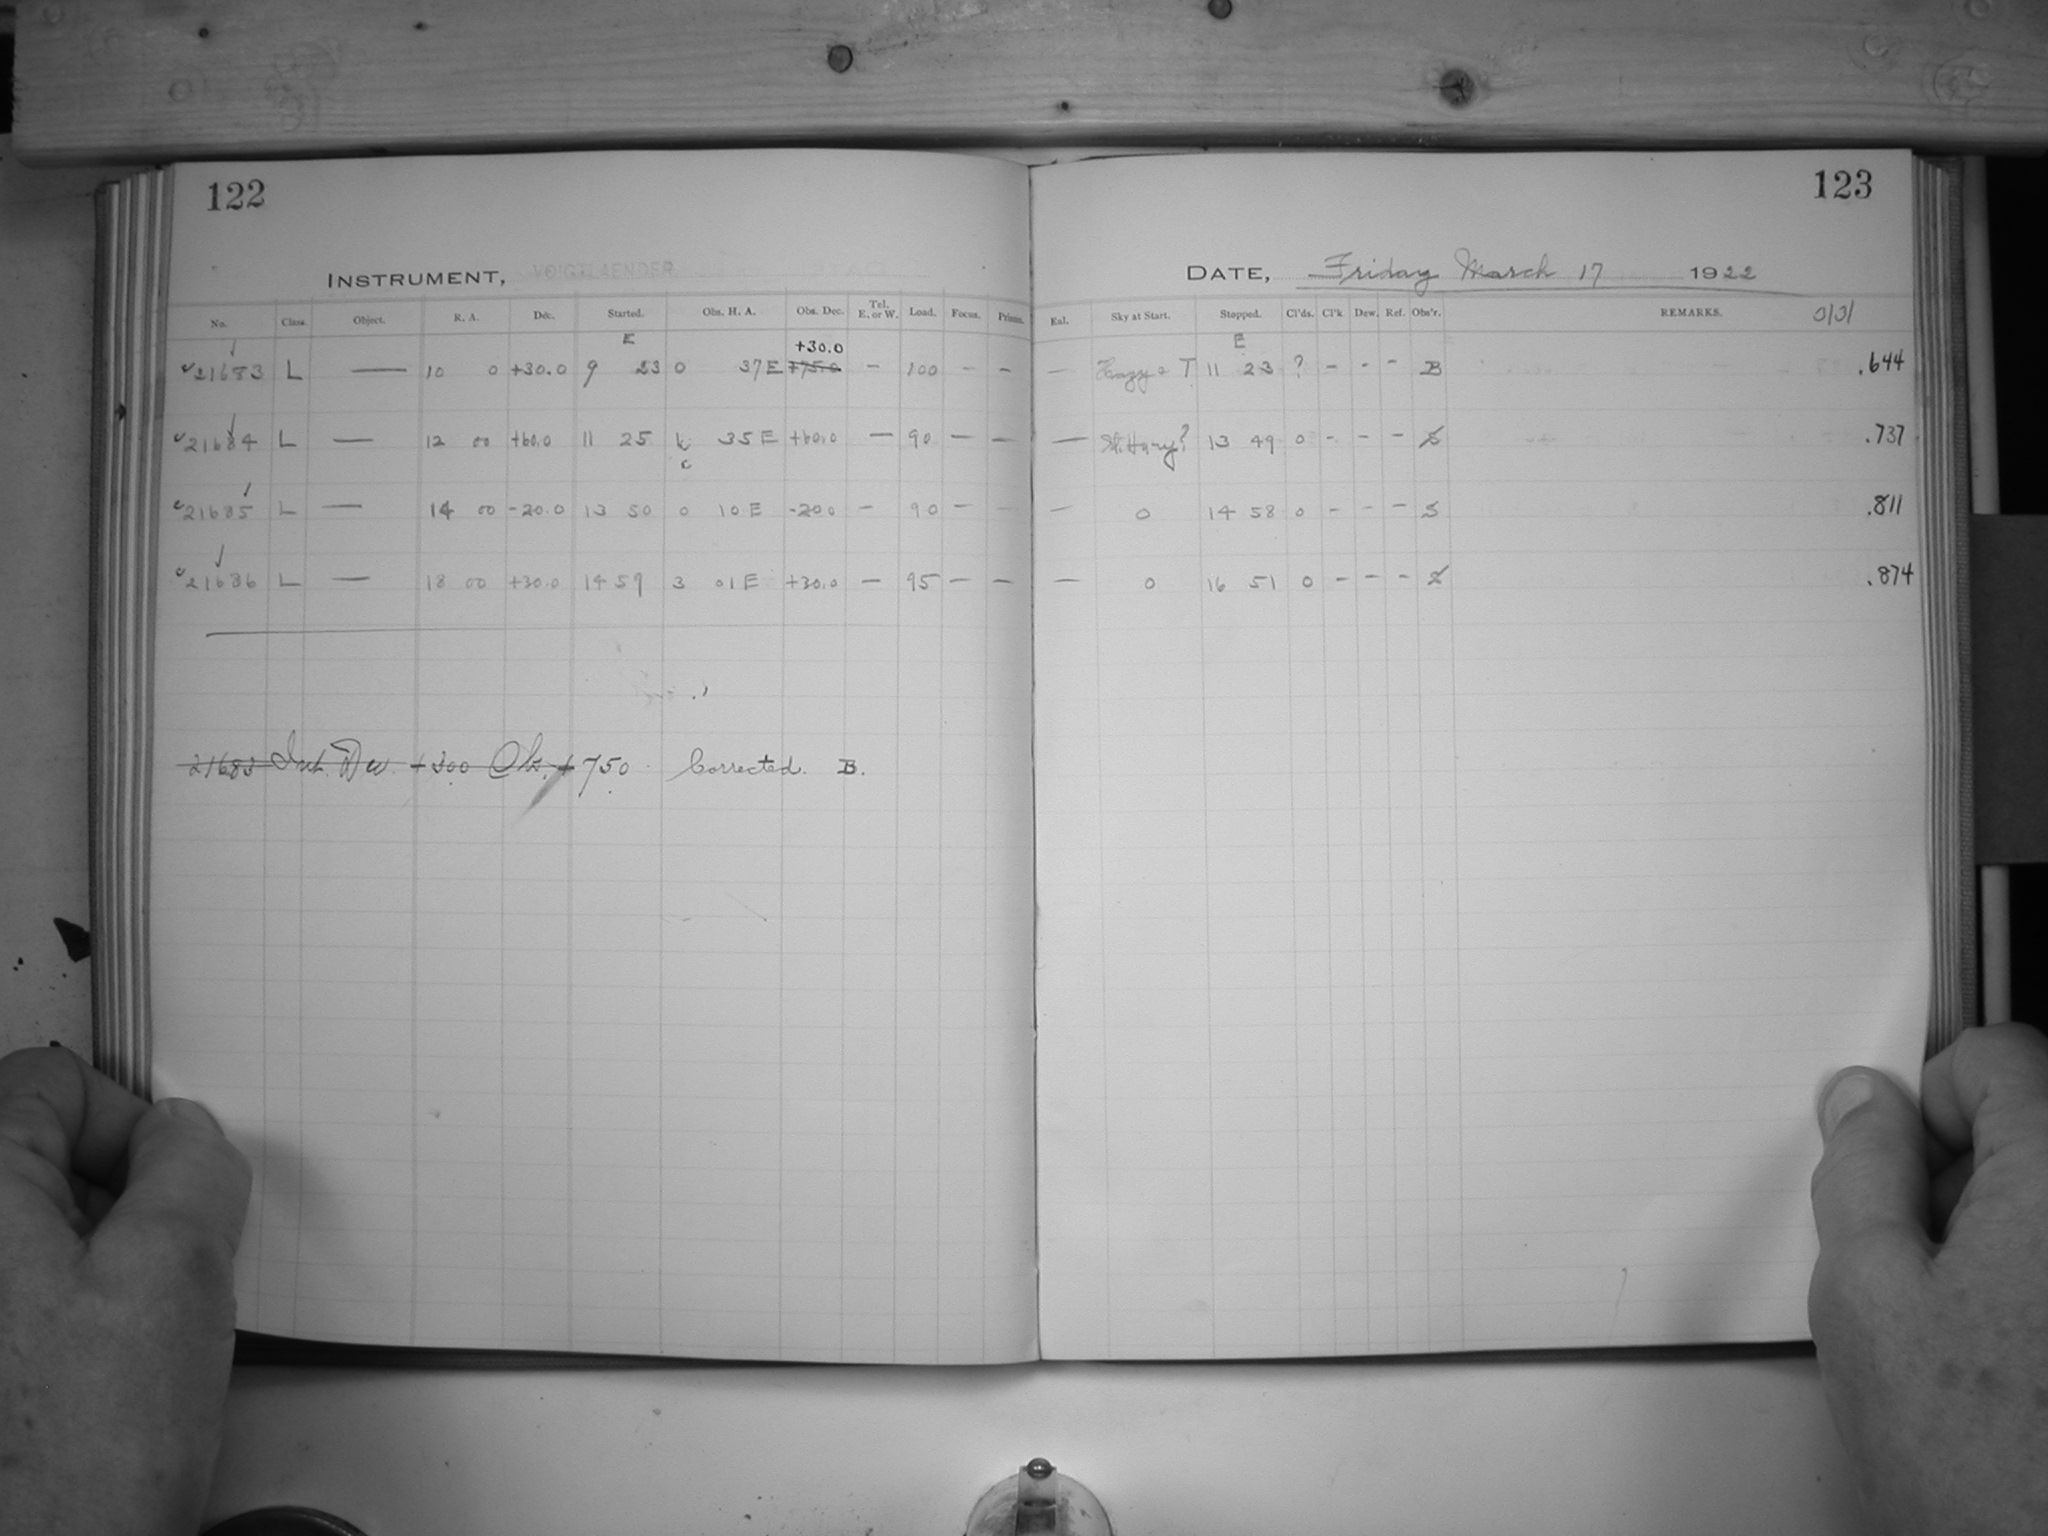 122
123
INSTRUMENT, VOIGTLAENDER
DATE, Friday March 17 1922
No. Class. Object. R. A. Dec. Started. Obs. H. A. Obs. Dec. Tel. E. or W. Load. Focus. Prism. Eal. Sky at Start. Stopped. Cl'ds. Cl'k Dew. Ref. Obs'r. REMARKS.
E +30.0 E
21683 L — 10 0 +30.0 9 23 0 37 E +75.0 – 100 – – – Hazy T 11 23 ? – – – B .644
21684 L — 12 00 +60.0 11 25 35 E +60.0 — 90 – – — 13 49 0 – – – S .737
21685 L — 14 00 -20.0 13 50 0 10 E -20.0 – 90 – – – 0 14 58 0 – – – S .811
21686 L — 18 00 +30.0 14 59 3 01 E +30.0 – 95 – – – 0 16 51 0 – – – S .874
21683 Dec. +300 Obs. +750 Corrected. B.